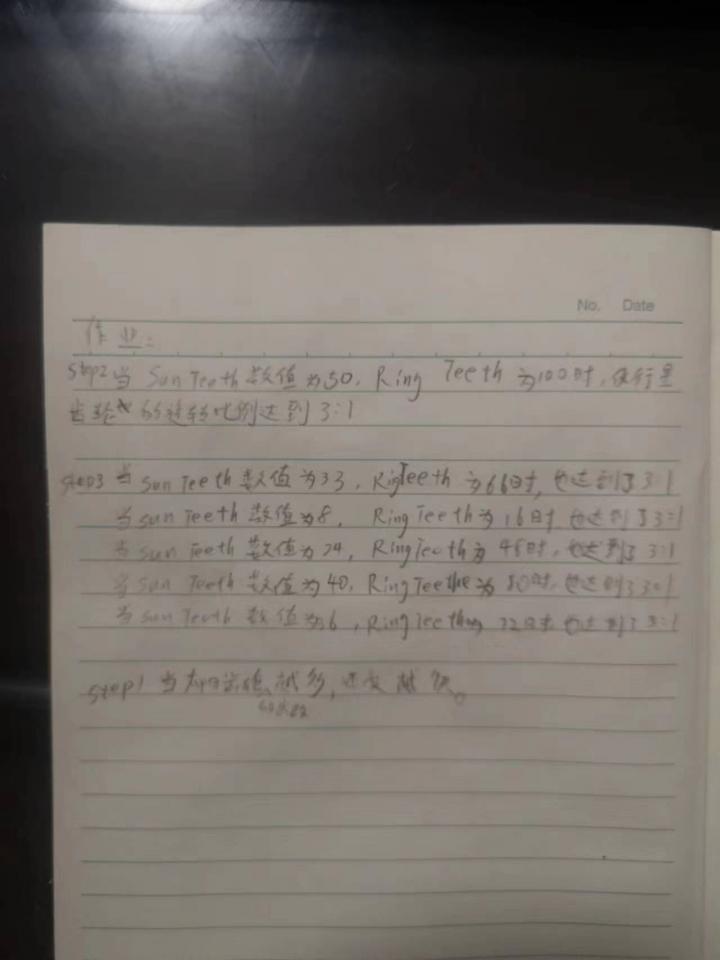 No. Date
作业：
Step2 当 Sun Teeth 数值为50, Ring Teeth 为100时, 使行星
齿轮的旋转比例达到 3:1
step3 当 Sun Teeth 数值为33, RingTeeth 为66时, 也达到了3:1
当 sun Teeth 数值为8, Ring Teeth 为16时 也达到了3:1
当 sun Teeth 数值为24, RingTeeth 为48时, 也达到了 3:1
当 sun Teeth 数值为40, RingTeeth 为 80时, 也达到了3:1
当 sun Teeth 数值为6, Ring Teeth为 时 也达到了3:1
step1 当太阳齿轮 越多, 速度越快。
的齿数